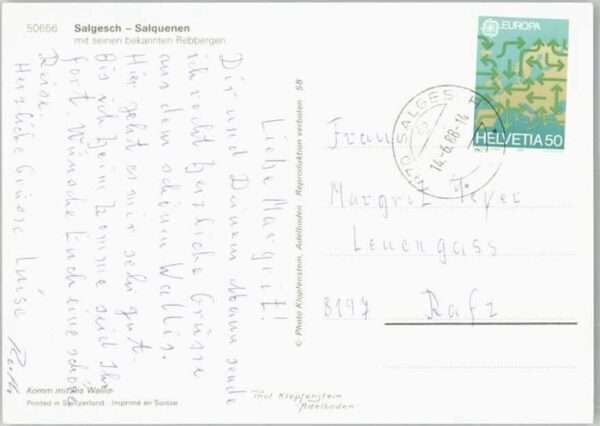 50656 Salgesch – Salquenen
mit seinen bekannten Rebbergen
Liebe Margrit!
Dir und Deinem Mann sende
ich recht herzliche Grüsse
aus dem schönen Wallis.
Hier geht es mir sehr gut.
Bis ich heim komme seid Ihr
fort. Wünsche Euch eine schöne
Reise.
Herzliche Grüsse Luise
Komm mit ins Wallis
Printed in Switzerland Imprimé en Suisse
© Photo Klopfenstein, Adelboden Reproduktion verboten 58
EUROPA
HELVETIA 50
3970 SALGESCH
14-6.88-14
Frau
Margrit
Leuengass
8197 Rafz
Thol Klopfenstein
Adelboden